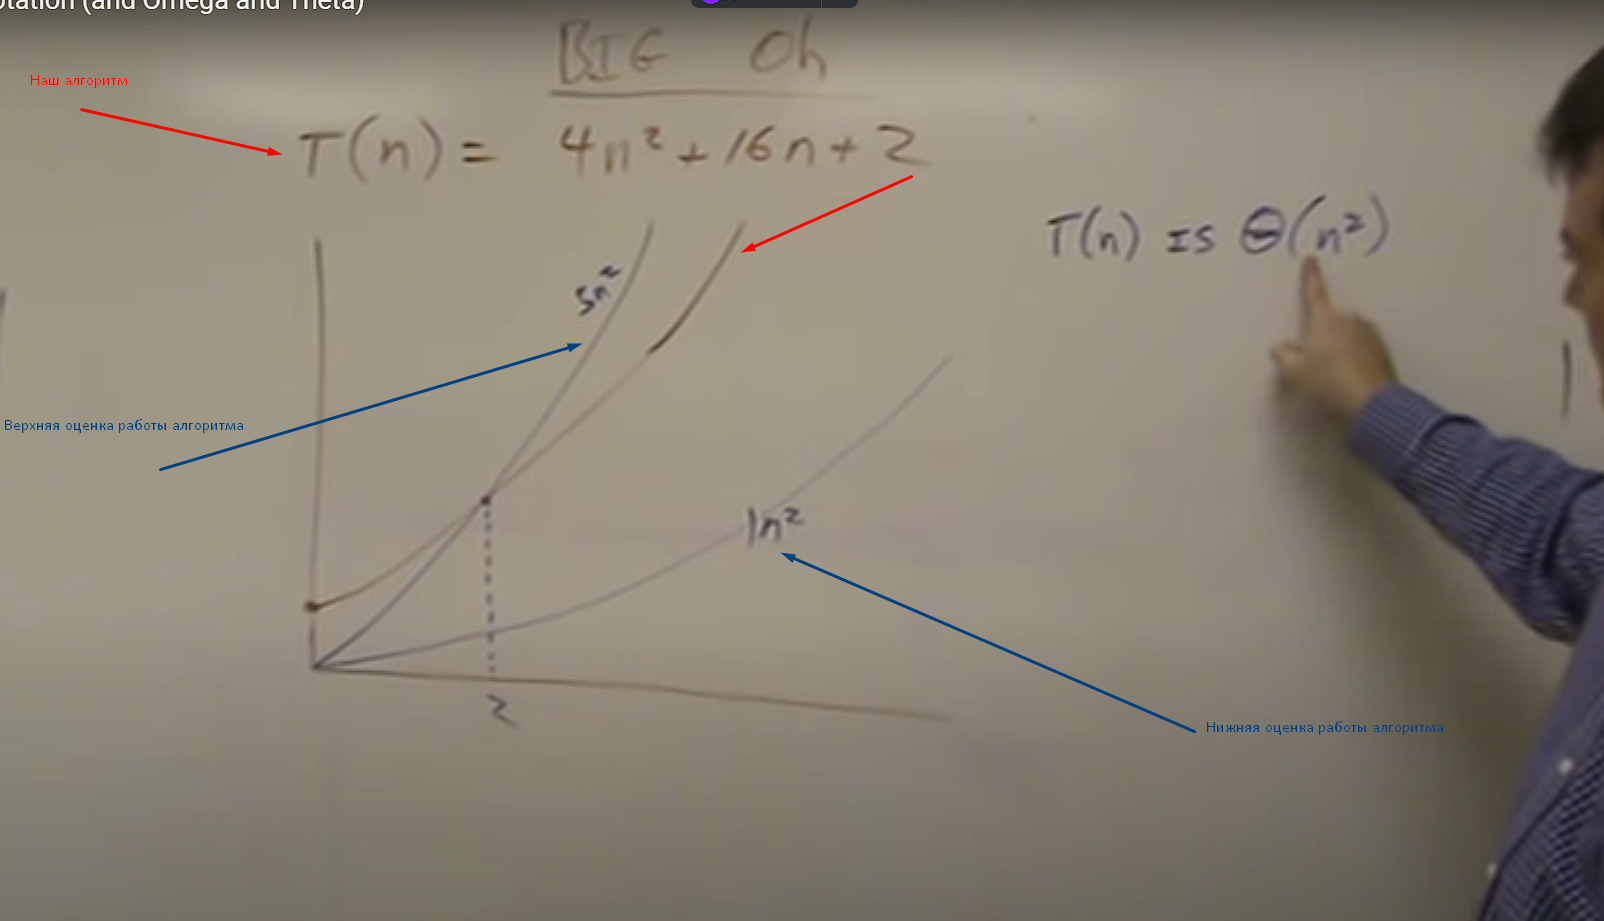 otation (and Omega and Theta)
BIG Oh
Наш алгоритм
T(n) = 4n² + 16n + 2
T(n) IS Θ(n²)
5n²
Верхняя оценка работы алгоритма
1n²
2
Нижняя оценка работы алгоритма